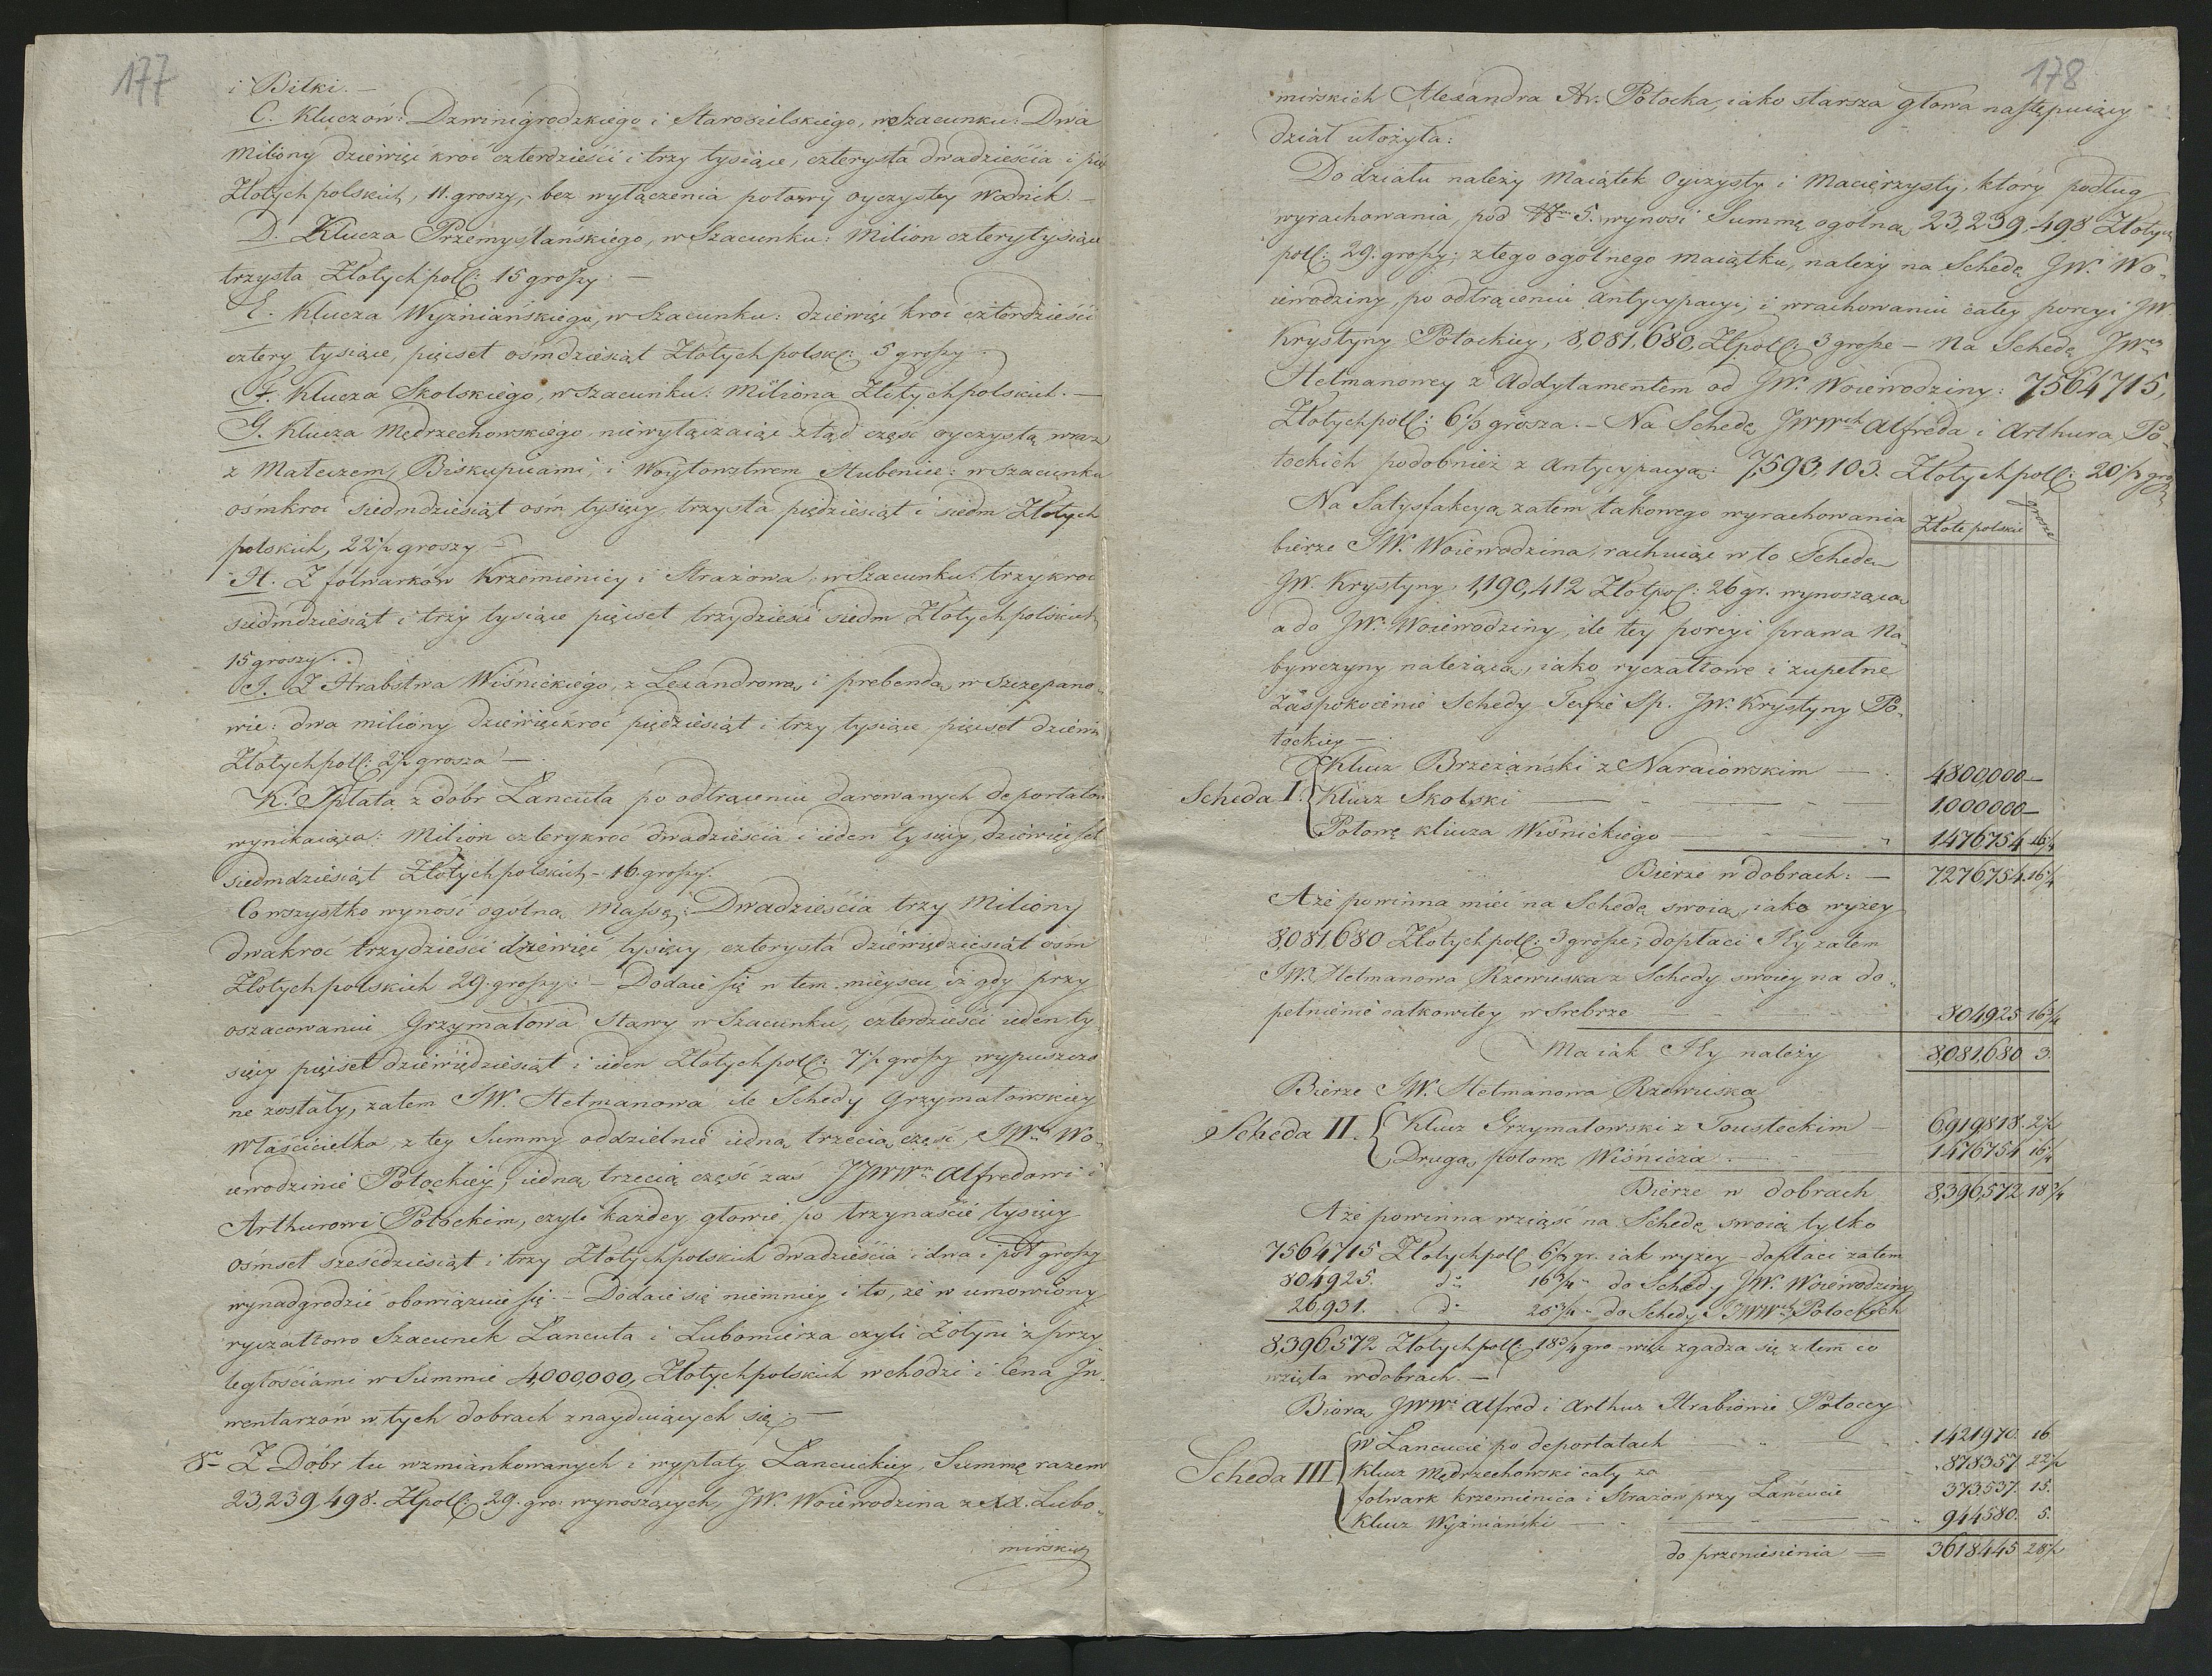 177
i Bitki. —
C. Kluczów: Dzwinigrodzkiego i Starosielskiego, w Szacunku: Dwa
Miliony dziewięć kroć czterdzieści i trzy tysiące, czterysta dwadzieścia i pięć
Złotych polskich, 11. groszy, bez wyłączenia połowy oyczystey Wodnik. —
D. Klucza Przemyslańskiego, w Szacunku: Milion cztery tysiące
trzysta Złotych pol: 15 groszy —
E. Klucza Wyżniańskiego, w Szacunku: dziewięć kroć czterdzieści
cztery tysiące, pięćset ośmdziesiąt Złotych polsk: 5 groszy.
F. Klucza Skolskiego, w Szacunku: Miliona Złotych polskich. —
G. Klucza Mędrzechowskiego niewyłączaiąc ztąd część oyczystą wraz
z Małczem, Biskupicami, i Woytowstwem Hubenice: w Szacunku
ośmkroć siedmdziesiąt ośm tysięcy trzysta pięćdziesiąt i siedm Złotych
polskich, 22½ groszy —
H. Z folwarków Krzemienicy i Strażowa, w Szacunku: trzykroć
siedmdziesiąt i trzy tysiące pięćset trzydzieści siedm Złotych polskich
15 groszy.
I. Z Hrabstwa Wiśnickiego, z Lexandrową i prebendą w Szczepano„
wie: dwa miliony dziewięćkroć pięćdziesiąt i trzy tysiące pięćset dziewięć
Złotych pol: 2½ grosza —
K. Spłata z dobr Lancuta po odtrąceniu darowanych deportatów
wynikaiąca: Milion czterykroć dwadzieścia i ieden tysięcy, dziewięćset
siedmdziesiąt Złotych polskich - 16. groszy.
Co wszystko wynosi ogólną Massę: Dwadzieścia trzy Miliony
dwakroć trzydzieści dziewięć tysięcy, czterysta dziewięćdziesiąt ośm
Złotych polskich 29. groszy. — Dodaie się w tem mieyscu, iż gdy przy
oszacowaniu Grzymałowa Stawy w Szacunku, czterdzieści ieden ty
sięcy pięćset dziewięćdziesiąt i ieden Złotych pol: 7½ groszy wypuszczo
ne zostały, zatem JW. Hetmanowa ile Schedy Grzymałowskiey
Właścicielka, z tey Summy oddzielnie iedną trzecią część, JWey Wo„
iewodzinie Potockiey, iedną trzecią część zaś JJWWm Alfredowi i
Arthurowi Potockim, czyli każdey głowie, po trzynaście tysięcy
ośmset sześćdziesiąt i trzy Złotych polskich dwadzieścia i dwa i pół groszy
wynadgrodzić obowiązuie się. — Dodaie się niemniey i to, że w umowiony
ryczałtowo Szacunek Lancuta i Lubomierza czyli Żołyni z przy„
ległościami w Summie 4,000,000, Złotych polskich wchodzi i Cena In„
wentarzów w tych dobrach znayduiących się. —
8vo Z Dóbr tu wzmiankowanych i wypłaty Lancuckiey, Summę razem
23,239,498. Zł pol: 29. gro: wynoszących, JW. Woiewodzina z XX. Lubo„
mirskich
178
mirskich Alexandra Hr. Potocka, iako starsza głowa następuiący
dział ułożyła:
Do działu należy Maiątek Oyczysty i Macierzysty, który podług
wyrachowania, pod Nrm 5. wynosi Summę ogólną 23,239,498 Złotych
pol: 29. groszy; z tego ogólnego maiątku, należy na Schedę JW. Wo„
iewodziny, po odtrąceniu antycypacyi, i wrachowaniu całey porcyi JW.
Krystyny Potockiey, 8,081,680, Zł pol: 3 grosze — Na Schedę JWey
Hetmanowey z Addytamentem od JW. Woiewodziny: 7564715,
Złotych pol: 6½ grosza. — Na Schedę JWWch Alfreda i Arthura Po„
tockich podobnież z Antycypacyą: 7,593,103. Złotych pol: 20½ gro
Na Satysfakcyą zatem takowego wyrachowania
Złote polskie
grosze
bierze JW. Woiewodzina, rachuiąc w to Schedę
JW. Krystyny 1,190,412 Złot pol: 26 gr. wynoszącą
a do JW. Woiewodziny, ile tey porcyi prawa Na„
bywczyny należącą, iako ryczałtowe i zupełne
Zaspokoienie Schedy Teyże Sp. JW. Krystyny Po„
tockiey —
Scheda I.
Klucz Brzeżański z Naraiowskim — 4800,000 —
Klucz Skolski — 1,000000 —
Połowę klucza Wiśnickiego — 1,476,754 16¼
Bierze w dobrach: — 7,276,754. 16¼
A że powinna mieć na Schedę swoią, iako wyżey
8,081,680 Złotych pol: 3 grosze, dopłaci Jły zatem
JW. Hetmanowa Rzewuska z Schedy swoiey na do„
pełnienie całkowitey w Srebrze 804925 16¾
Ma iak Jły należy 8,081,680 3.
Bierze JW. Hetmanowa Rzewuska
Scheda II.
Klucz Grzymałowski z Tousteckim — 6,919818. 2½
Drugą połowę Wiśnicza — 1,476754 16¼
Bierze w dobrach 8,396,572 18¾
A że powinna wziąść na Schedę swoią tylko
7564715 Złotych pol 6½ gr. iak wyżey — dopłaci zatem
804925. do 16¾ — do Schedy JW. Woiewodziny
26,931. do 25¾ — do Schedy JJWWch Potockich
8,396,572 Złotych pol: 18¾ gro — więc zgadza się z tem co
wzięła w dobrach. —
Biorą JWWi Alfred i Arthur Hrabiowie Potoccy
Scheda III.
w Lancucie po deportatach — 1,421970. 16.
Klucz Mędrzechowski cały za 878357 22½
folwark krzemienica i Strazow przy Lańcucie 373,537. 15.
Klucz Wyżniański — 944580. 5.
do przeniesienia = 3,618,445 28½